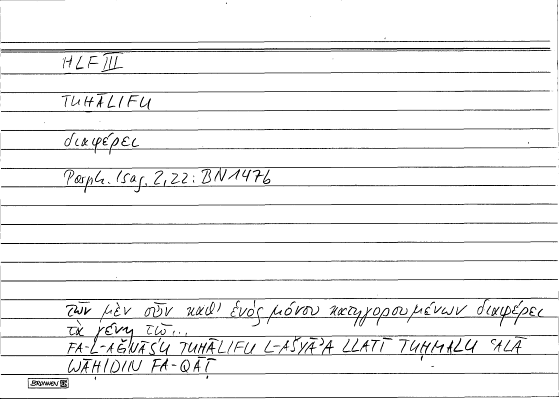 HLF III
TUḪĀLIFU
διαφέρει
Porph. Isag. 2,22: BN 147b
τῶν μὲν οὖν καθ' ἑνὸς μόνου κατηγορουμένων διαφέρει
τὰ γένη τῷ...
FA-L-AǦNĀSU TUḪĀLIFU L-AŠYĀ'A LLATĪ TUḤMALU ʿALĀ
WĀḤIDIN FA-QAṬ
BRUNNEN